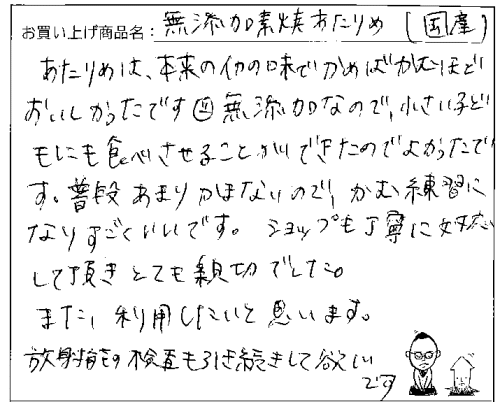 お買い上げ商品名：無添加素焼あたりめ（国産）
あたりめは、本来のイカの味でかめばかむほど
おいしかったです 無添加なので、小さい子ど
もにも食べさせることができたのでよかったで
す。普段あまりかまないので、かむ練習に
なりすごくいいです。ショップも丁寧に対応
して頂きとても親切でした。
また、利用したいと思います。
放射能の検査も引き続きして欲しい
です